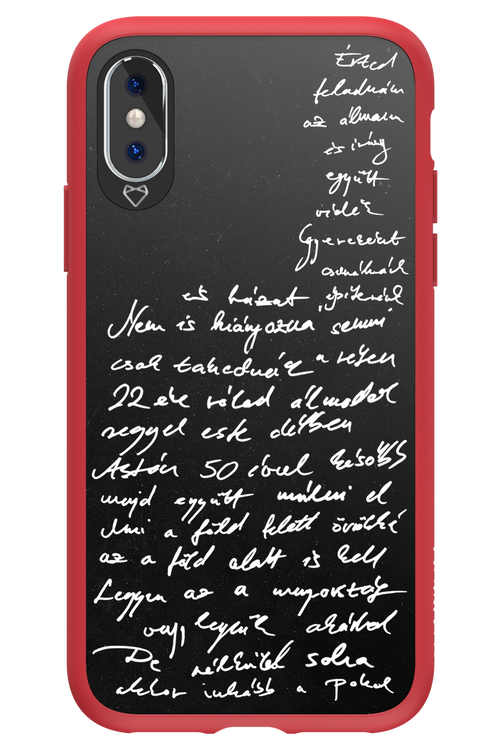 Érted
feladnám
az álmom
és irány
együtt
vidék
Gyerekeket
csinálnánk
és házat építenénk
Nem is hiányozna semmi
csak takednék a télen
22 éve rólad álmodok
reggel este délben
Aztán 50 évvel később
majd együtt múlni el
Ami a föld felett örökké
az a föld alatt is kell
Legyen az a mennyország
vagy legyünk akárhol
De nélküled soha
akkor inkább a Pokol